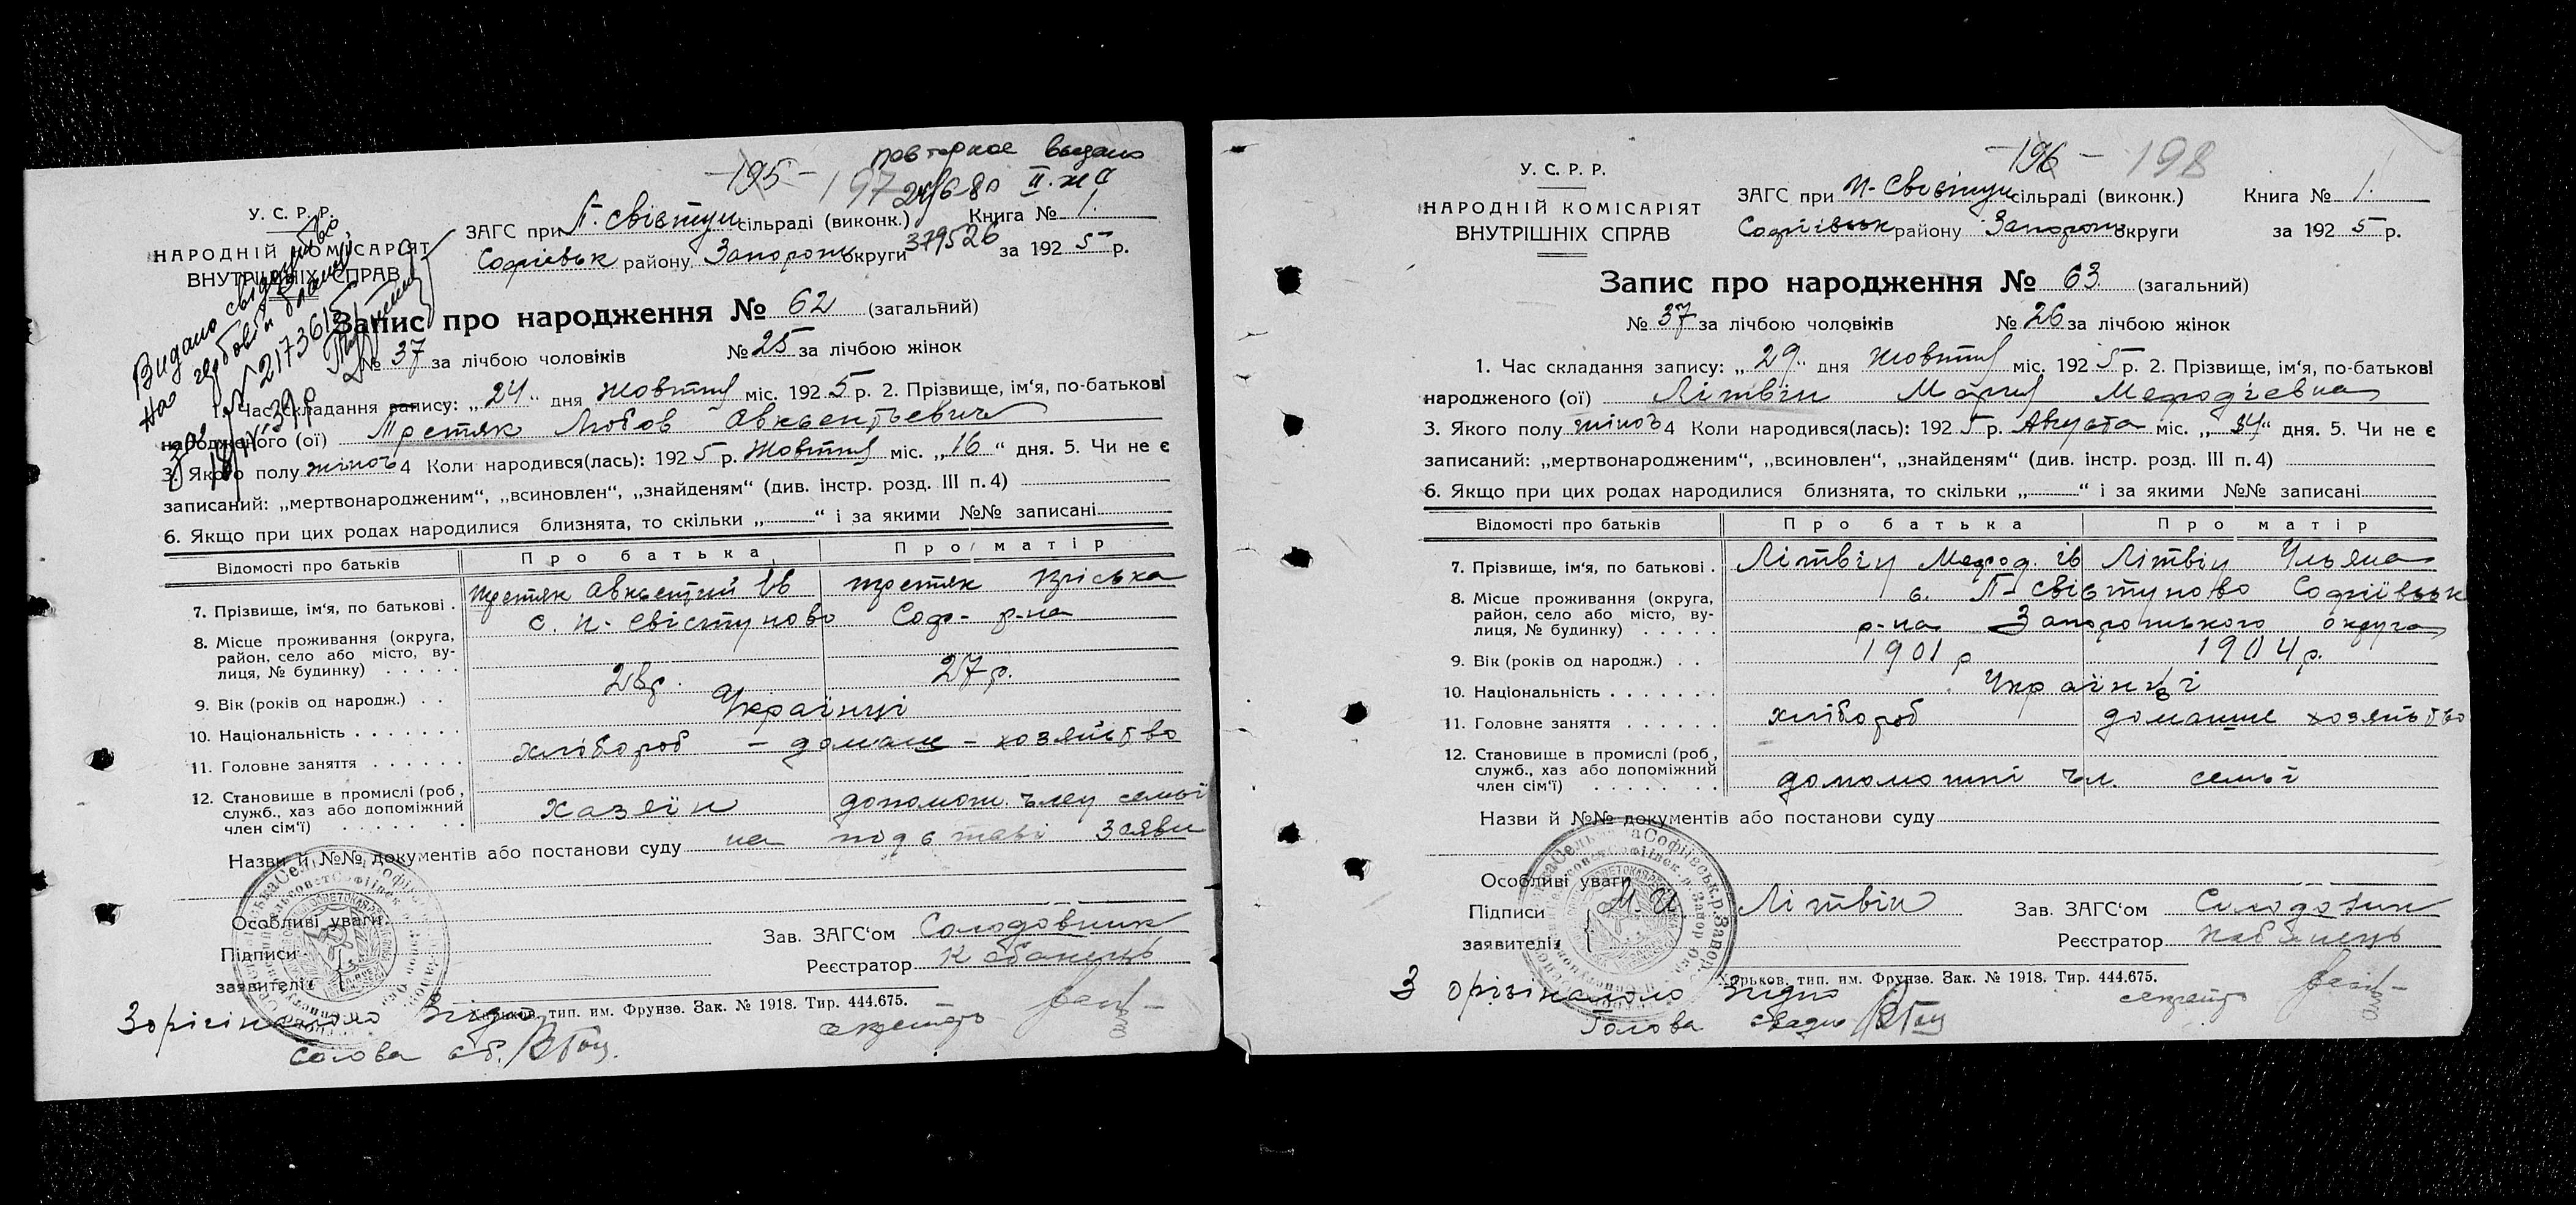 -195- 197
повторное выдано
24/6-80 II-ЖС
379526
У. С. Р. Р.
НАРОДНІЙ КОМІСАРІЯТ
ВНУТРІШНІХ СПРАВ
ЗАГС при П. Свістун сільраді (виконк.) Книга № 1.
Софієвьк району Запорожь округи за 1925 р.
Видано свідоцтво
на гербовій
№ 217361
39р
Запис про народження № 62 (загальний)
№ 37 за лічбою чоловіків № 25 за лічбою жінок
1. Час складання запису: „24“ дня жовтня міс. 1925 р. 2. Прізвище, ім‘я, по-батькові
народженого (ої) Любов Авксентьевич
3. Якого полу жіноч 4 Коли народився(лась): 1925 р. Жовтня міс. „16“ дня. 5. Чи не є
записаний: „мертвонародженим“, „всиновлен“, „знайденям“ (див. інстр. розд. III п. 4)
6. Якщо при цих родах народилися близнята, то скільки „—“ і за якими №№ записані
Відомості про батьків Про батька Про матір
7. Прізвище, ім‘я, по батькові .
8. Місце проживання (округа, район, село або місто, вулиця, № будинку) с. п. Свістуново Соф- р-на
9. Вік (років од народж.) . . 27 р.
10. Національність Українці
11. Головне заняття хлібороб - домаше - хозяйство
12. Становище в промислі (роб, служб., хаз або допоміжний член сім‘ї) Хазяїн допомож. член семьї
Назви й №№ документів або постанови суду на подставі заяви
Особливі уваги
Підписи
заявителів
Зав. ЗАГС‘ом Солодовник
Реєстратор Кабанець
Харьков, тип. им. Фрунзе. Зак. № 1918. Тир. 444.675.
З орігіналомо Згідно
Голова
-196- 198
У. С. Р. Р.
НАРОДНІЙ КОМІСАРІЯТ
ВНУТРІШНІХ СПРАВ
ЗАГС при П-Свистун сільраді (виконк.) Книга № 1.
Софіївськ району Запорожь округи за 1925 р.
Запис про народження № 63 (загальний)
№ 37 за лічбою чоловіків № 26 за лічбою жінок
1. Час складання запису: „29“ дня жовтня міс. 1925 р. 2. Прізвище, ім‘я, по-батькові
народженого (ої) Літвін Марія Мефодієвна
3. Якого полу жіноч 4 Коли народився(лась): 1925 р. Августа міс. дня. 5. Чи не є
записаний: „мертвонародженим“, „всиновлен“, „знайденям“ (див. інстр. розд. III п. 4)
6. Якщо при цих родах народилися близнята, то скільки „—“ і за якими №№ записані
Відомості про батьків Про батька Про матір
7. Прізвище, ім‘я, по батькові . Літвін Мефод. ів Літвін Ульяна
8. Місце проживання (округа, район, село або місто, вулиця, № будинку) с. П-Свістуново Софіївськ
р-на Запорожського округа
9. Вік (років од народж.) . . 1901 р 1904 р.
10. Національність Українці
11. Головне заняття хлібороб домашне хозяйство
12. Становище в промислі (роб, служб., хаз або допоміжний член сім‘ї) домоможні чл. семьї
Назви й №№ документів або постанови суду
Особливі уваги
Підписи М. И. Літвін
заявителів
Зав. ЗАГС‘ом Солодовник
Реєстратор Кабанець
Харьков, тип. им. Фрунзе. Зак. № 1918. Тир. 444.675.
З орігіналомо Згідно
Голова